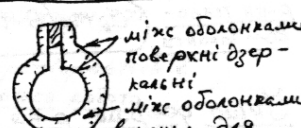 між оболонками
поверхні дзер-
кальні
між оболонками
для